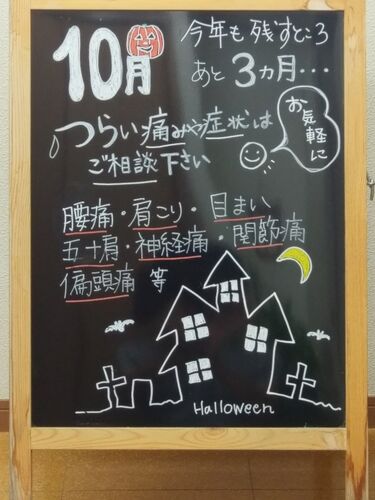 10月
今年も残すところ
あと3カ月・・・
つらい痛みや症状は
ご相談下さい
お気軽に
腰痛・肩こり・目まい
五十肩・神経痛・関節痛
偏頭痛 等
Halloween